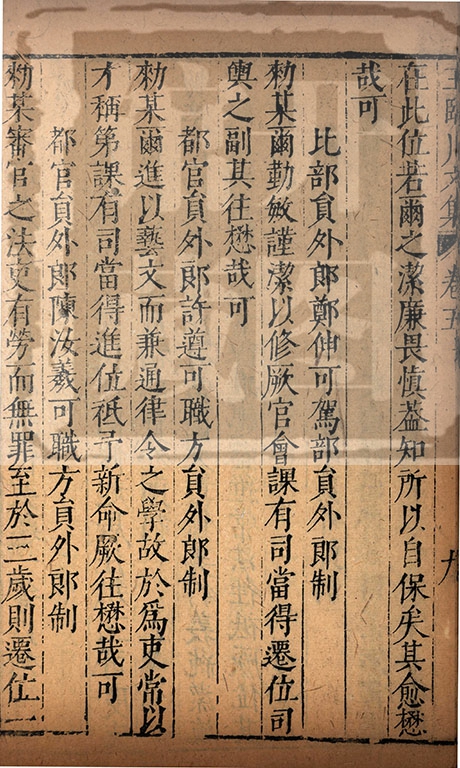 王臨川文集 卷五 九
在此位若爾之潔廉畏慎葢知所以自保矣其愈懋
哉可
比部員外郎鄭伸可駕部員外郎制
勑某爾勤敏謹潔以修厥官會課有司當得遷位司
輿之副其往懋哉可
都官員外郎許遵可職方員外郎制
勑某爾進以藝文而兼通律令之學故於爲吏常以
才稱第課有司當得進位祗予新命厥往懋哉可
都官員外郎陳汝羲可職方員外郎制
勑某審官之法吏有勞而無罪至於三歲則遷位一